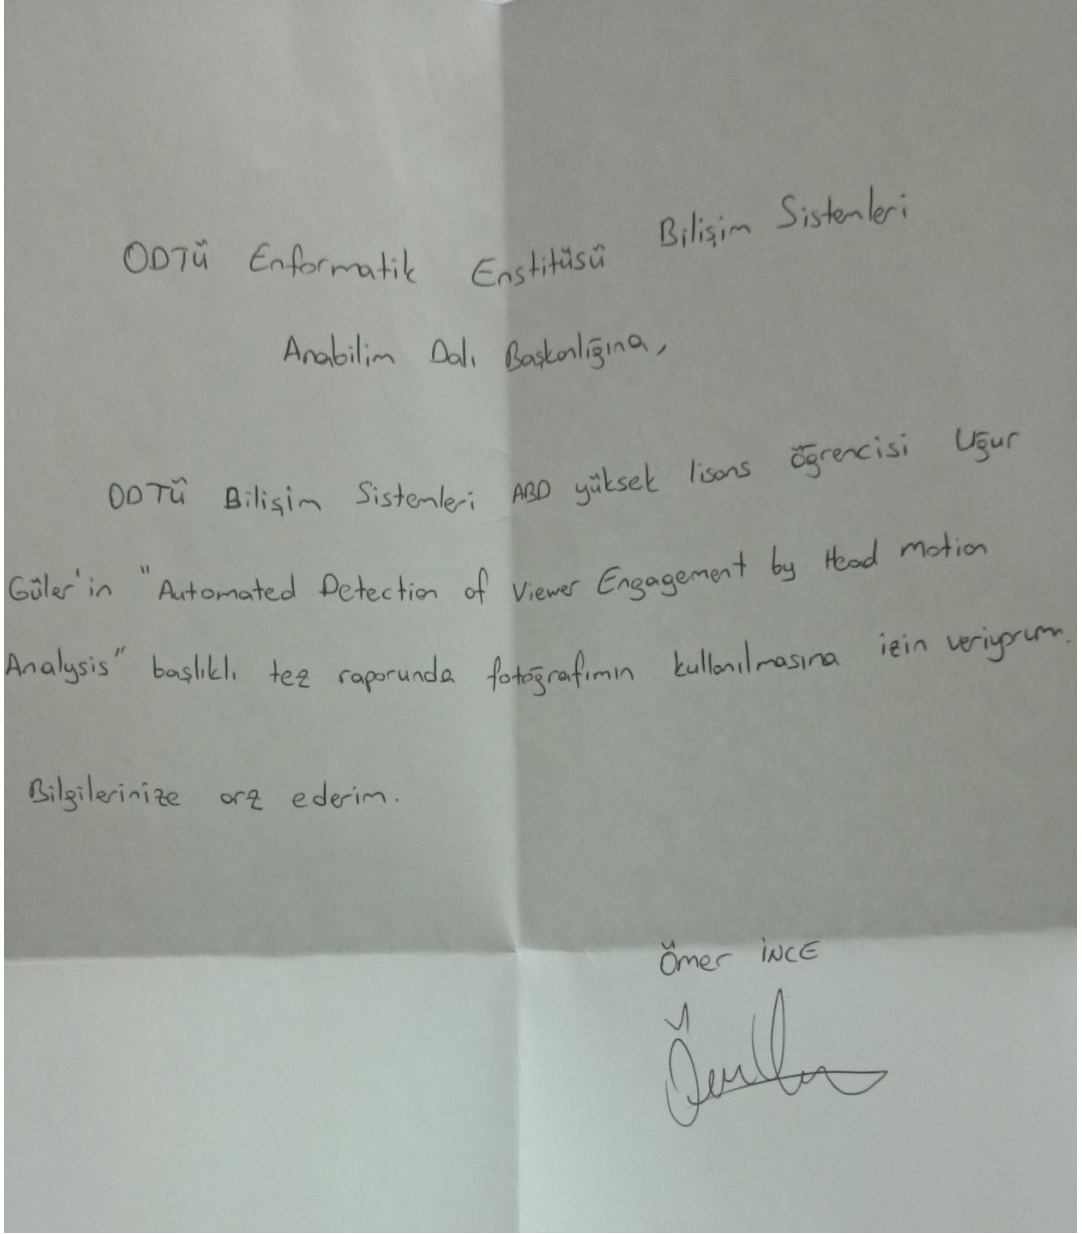 ODTÜ Enformatik Enstitüsü Bilişim Sistemleri
Anabilim Dalı Başkanlığına,
ODTÜ Bilişim Sistemleri ABD yüksek lisans öğrencisi Uğur
Güler'in "Automated Detection of Viewer Engagement by Head Motion
Analysis" başlıklı tez raporunda fotoğrafımın kullanılmasına izin veriyorum.
Bilgilerinize arz ederim.
Ömer İNCE